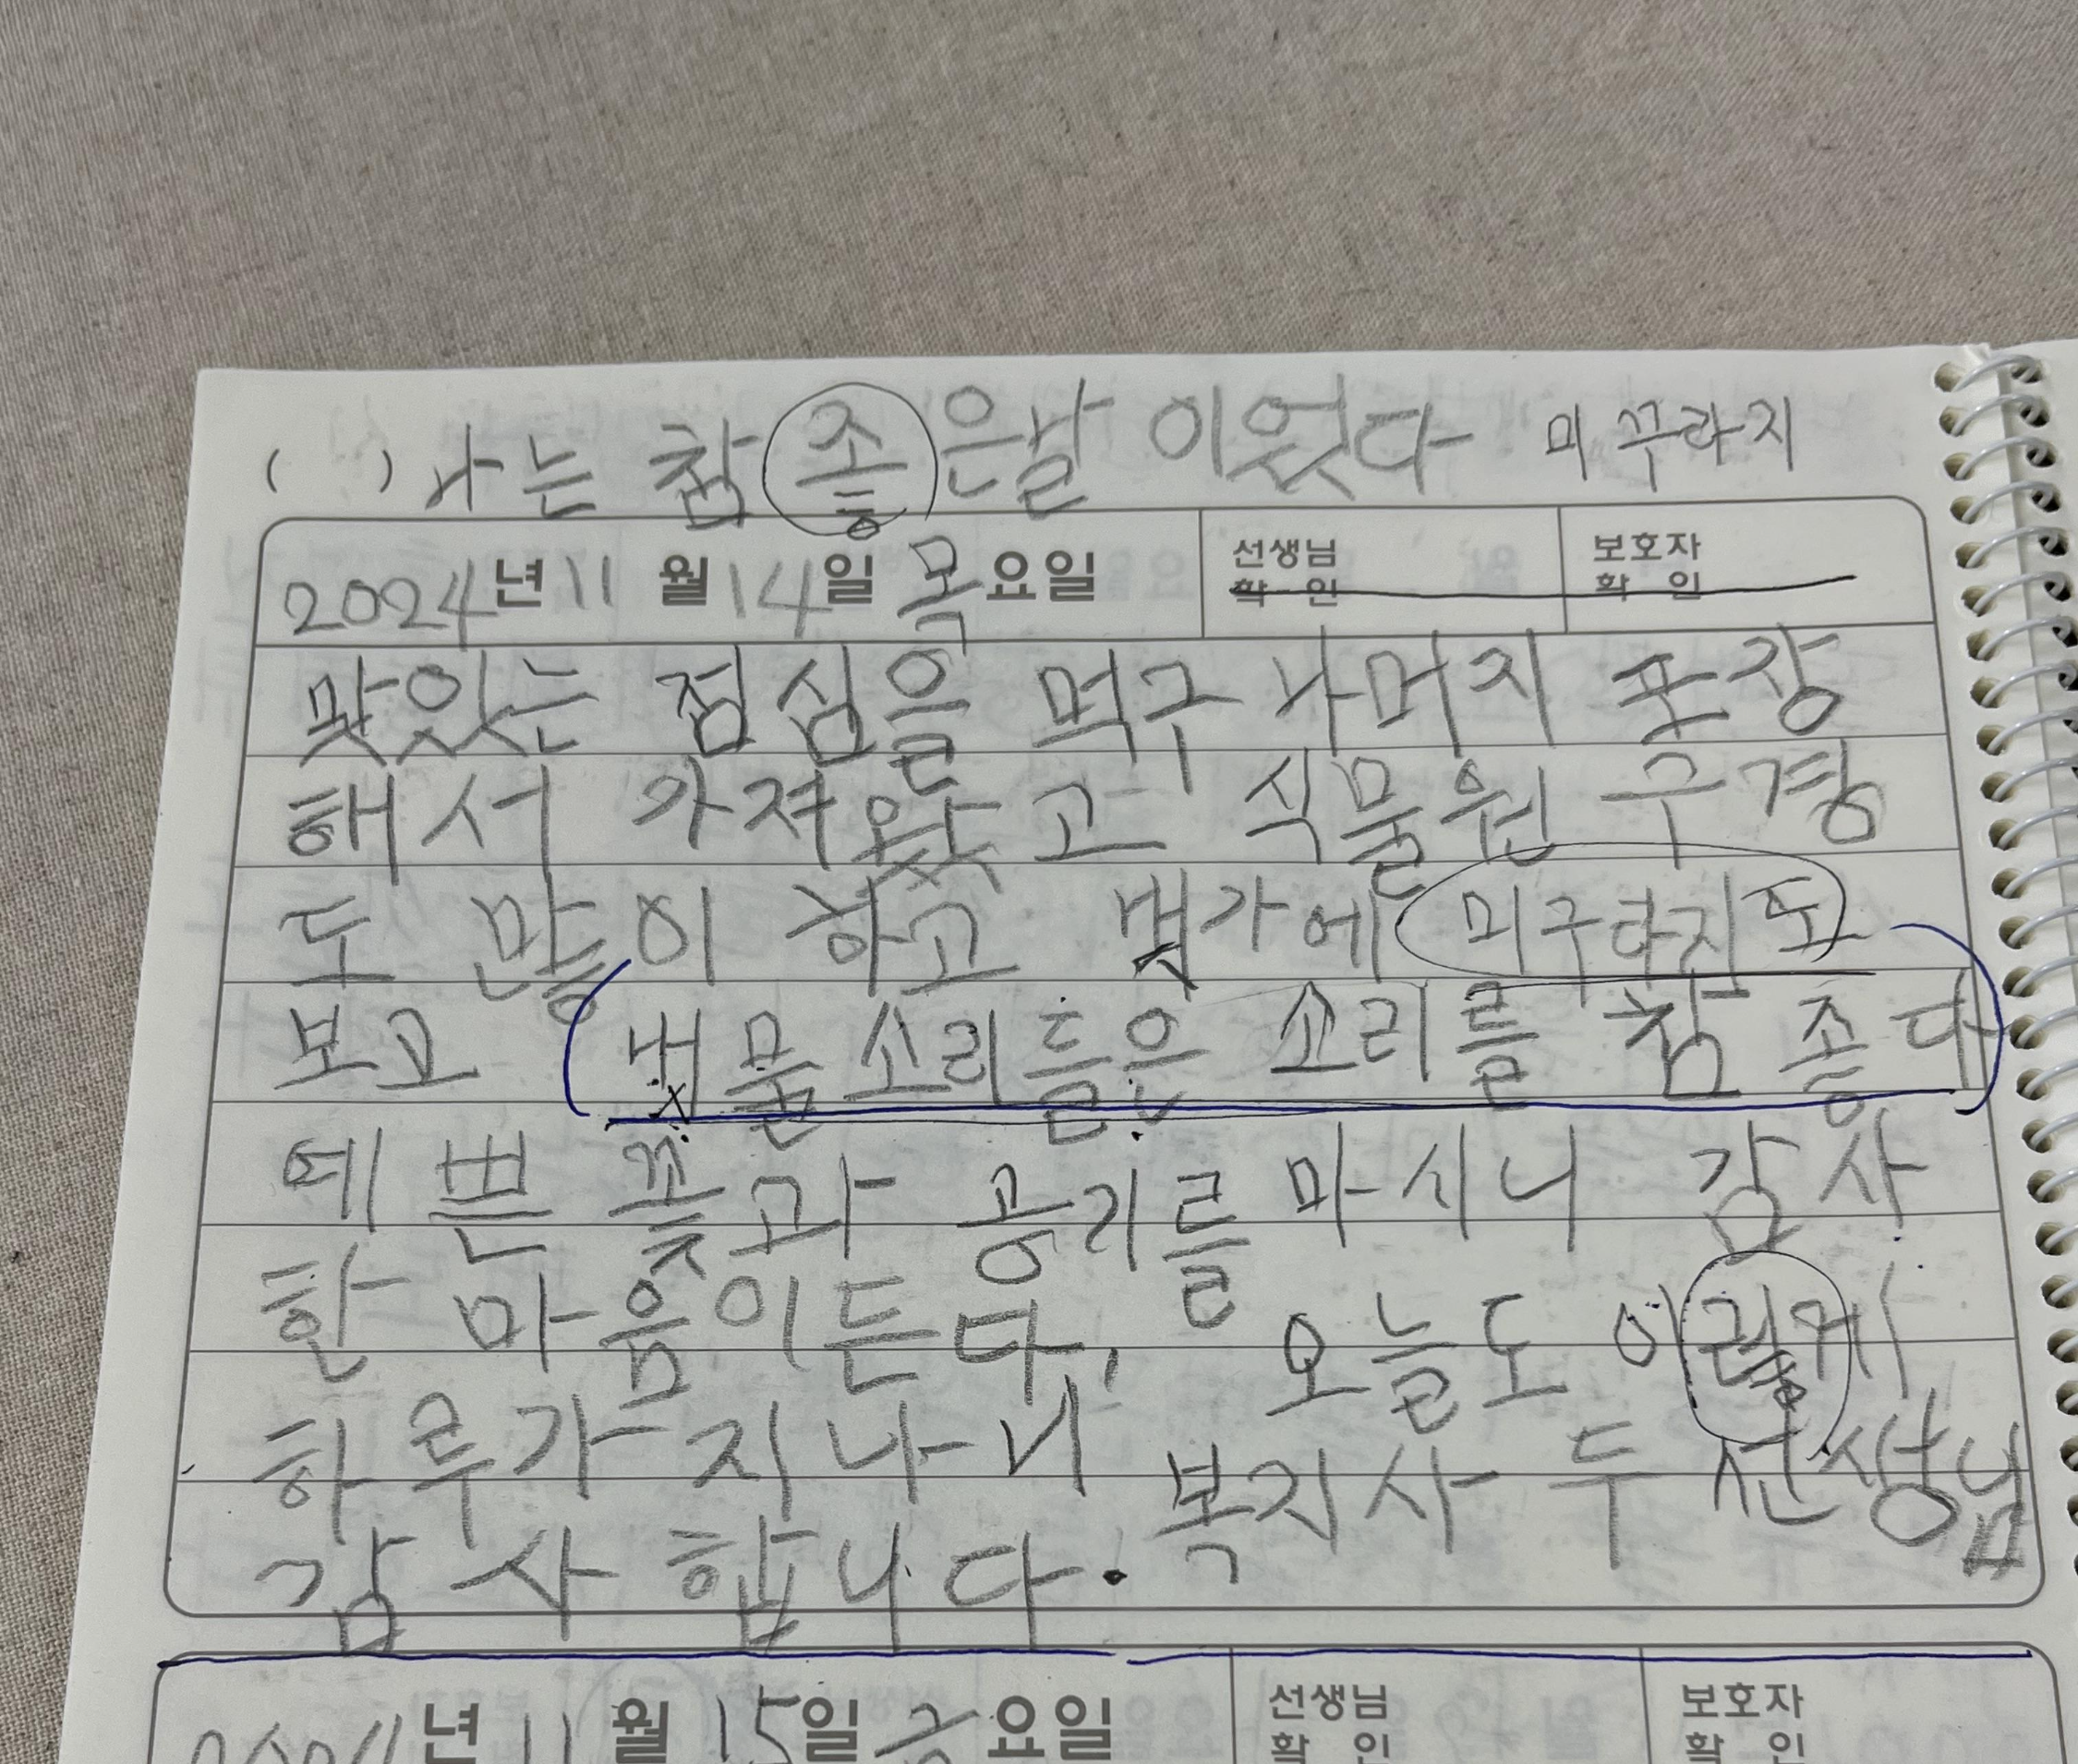 ( ) 나는 참 좋은날 이었다 미꾸라지
2024년 11 월 14일 목요일 선생님 확 인 보호자 확 인
맞있는 점심을 먹구 나머지 포장
해서 가져왔고 식물원 구경
도 많이 하고 냇가에 미구라지도
보고 냇물소리들은 소리를 참 좋다
예쁜 꽃과 공기를 마시니 감사
한 마음이든다. 오늘도 이렇게
하루가 지나니 복지사 두 선생님
감사합니다.
2024년 11 월 15일 금요일 선생님 확 인 보호자 확 인